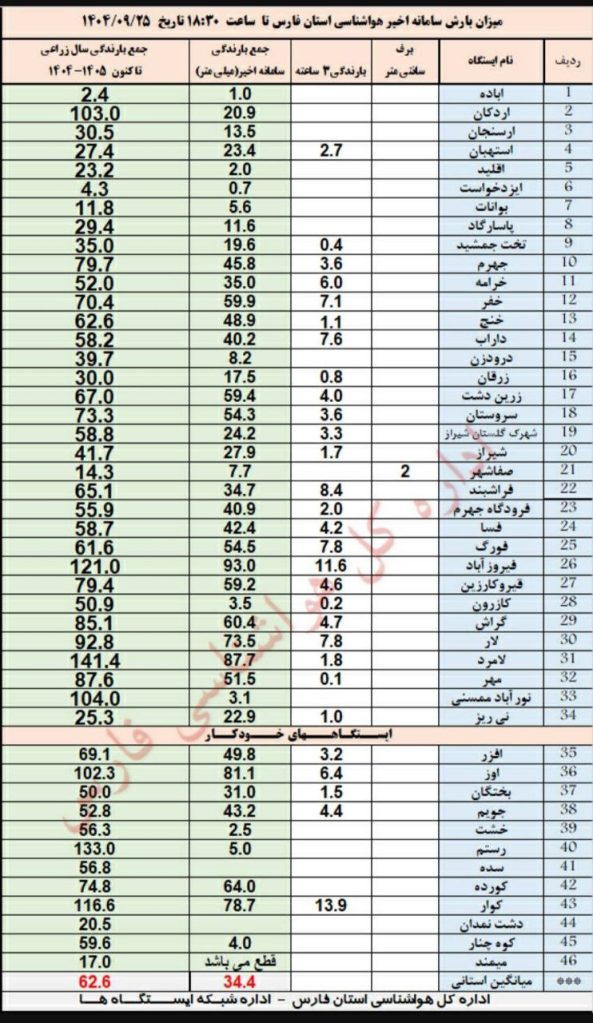 میزان بارش سامانه اخیر هواشناسی استان فارس تا ساعت ۱۸:۳۰ تاریخ ۱۴۰۴/۰۹/۲۵
ردیف نام ایستگاه برف سانتی متر بارندگی۳ ساعته جمع بارندگی سامانه اخیر(میلی متر) جمع بارندگی سال زراعی تا کنون ۱۴۰۵-۱۴۰۴
1 اباده 1.0 2.4
2 اردکان 20.9 103.0
3 ارسنجان 13.5 30.5
4 استهبان 2.7 23.4 27.4
5 اقلید 2.0 23.2
6 ایزدخواست 0.7 4.3
7 بوانات 5.6 11.8
8 پاسارگاد 11.6 29.4
9 تخت جمشید 0.4 19.6 35.0
10 جهرم 3.6 45.8 79.7
11 خرامه 6.0 35.0 52.0
12 خفر 7.1 59.9 70.4
13 خنج 1.1 48.9 62.6
14 داراب 7.6 40.2 58.2
15 درودزن 8.2 39.7
16 زرقان 0.8 17.5 30.0
17 زرین دشت 4.0 59.4 67.0
18 سروستان 3.6 54.3 73.3
19 شهرک گلستان شیراز 3.3 24.2 58.8
20 شیراز 1.7 27.9 41.7
21 صفاشهر 2 7.7 14.3
22 فراشبند 8.4 34.7 65.1
23 فرودگاه جهرم 2.0 40.9 55.9
24 فسا 4.2 42.4 58.7
25 فورگ 7.8 54.5 61.6
26 فیروزآباد 11.6 93.0 121.0
27 قیروکارزین 4.6 59.2 79.4
28 کازرون 0.2 3.5 50.9
29 گراش 4.7 60.4 85.1
30 لار 7.8 73.5 92.8
31 لامرد 1.8 87.7 141.4
32 مهر 0.1 51.5 87.6
33 نورآباد ممسنی 3.1 104.0
34 نی ریز 1.0 22.9 25.3
ایستگاههای خودکار
35 افزر 3.2 49.8 69.1
36 اوز 6.4 81.1 102.3
37 بختگان 1.5 31.0 50.0
38 جویم 4.4 43.2 52.8
39 خشت 2.5 56.3
40 رستم 5.0 133.0
41 سده 56.8
42 کورده 64.0 74.8
43 کوار 13.9 78.7 116.6
44 دشت نمدان 20.5
45 کوه چنار 4.0 59.6
46 میمند قطع می باشد 17.0
*** میانگین استانی 34.4 62.6
اداره کل هواشناسی استان فارس - اداره شبکه ایستگاه ها
اداره کل هواشناسی فارس